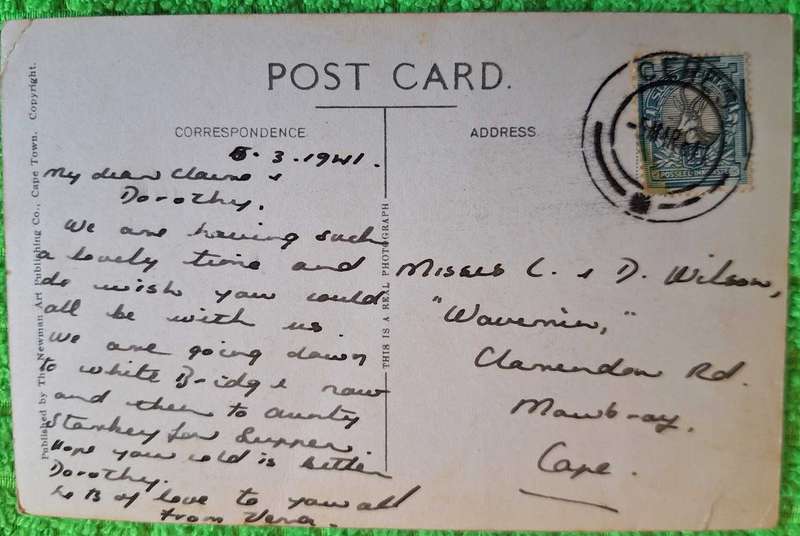 POST CARD.
CORRESPONDENCE
ADDRESS
Published by The Newman Art Publishing Co., Cape Town. Copyright.
THIS IS A REAL PHOTOGRAPH
5.3.1941.
My dear Claire &
Dorothy.
We are having such
a lovely time and
do wish you could
all be with us.
We are going down
to white Bridge now
and then to Aunty
Starkey for Supper.
Hope your cold is better
Dorothy.
of love to you all
from Vera.
Misses C. & D. Wilson,
Clarendon Rd.
Mowbray.
Cape.
CERES
MAR
POSSEEL-INKOMSTE